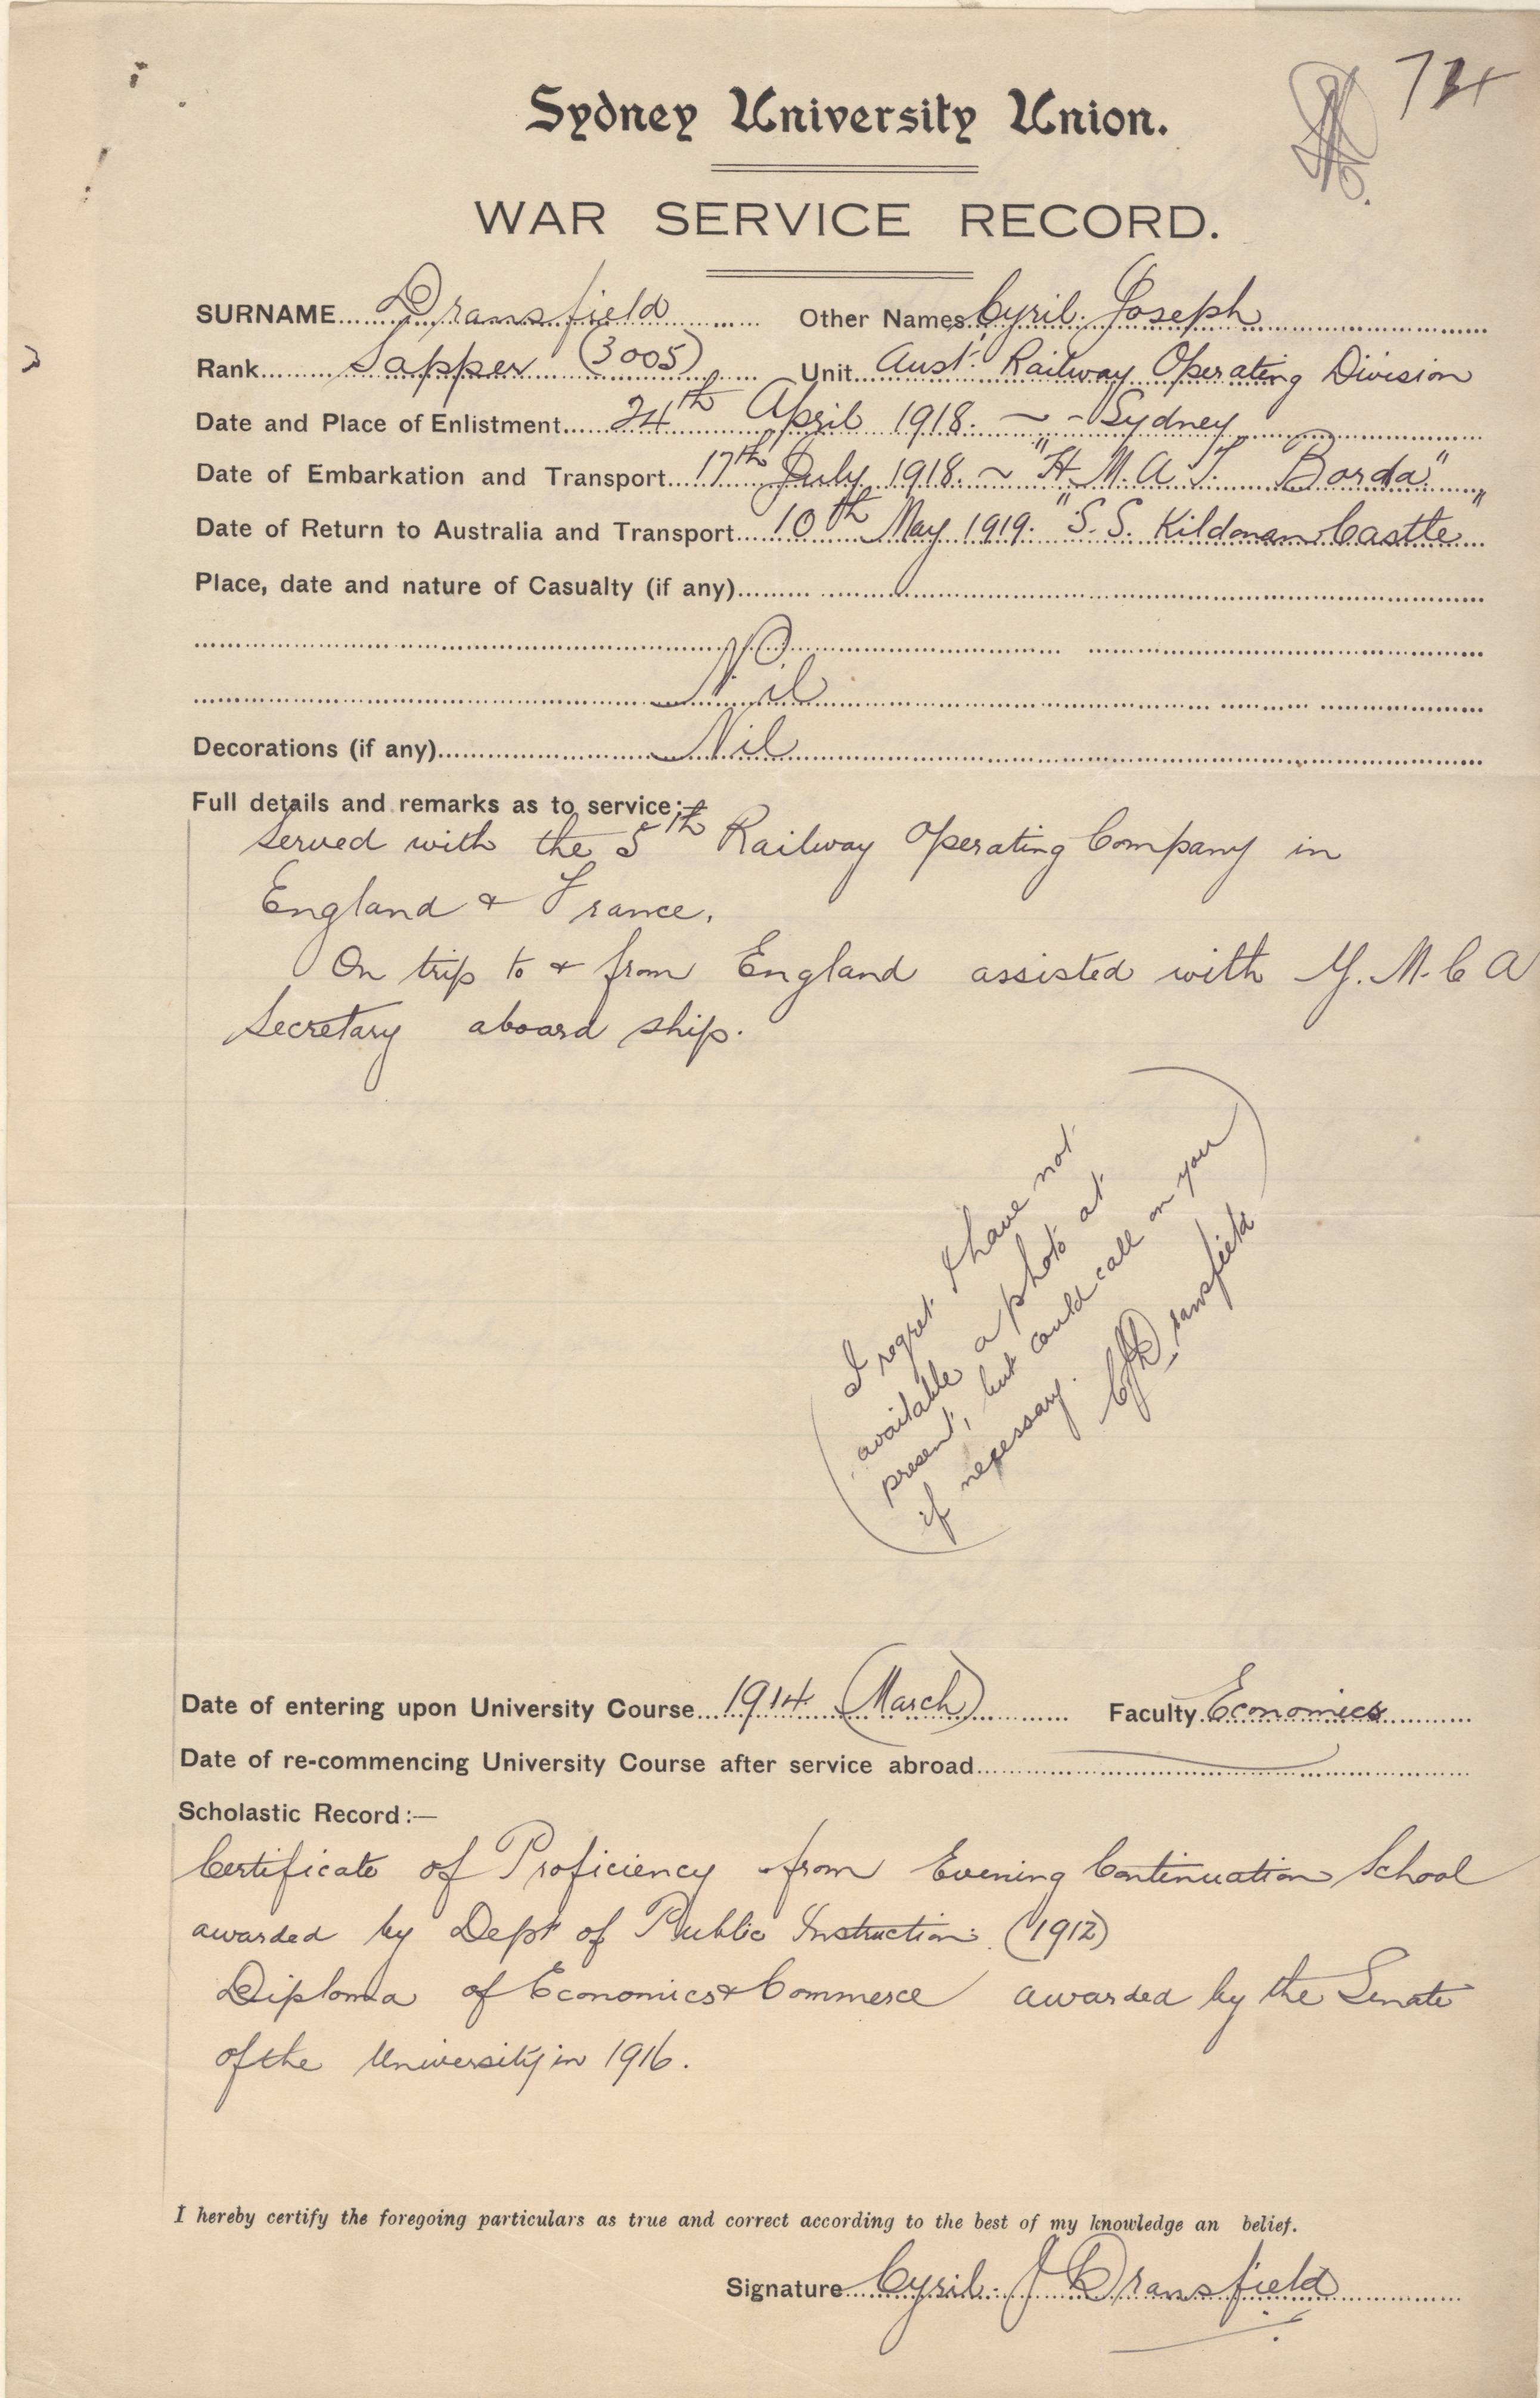 Sydney University Union.
WAR SERVICE RECORD.
SURNAME Dransfield Other Names Cyril. Joseph
Rank Sapper (3005) Unit Aust. Railway Operating Division
Date and Place of Enlistment 24th April 1918. ~ - Sydney
Date of Embarkation and Transport 17th July 1918. ~ "H.M.A.T. Borda"
Date of Return to Australia and Transport 10th May 1919. "S.S. Kildonan Castle"
Place, date and nature of Casualty (if any)
Nil
Decorations (if any) Nil
Full details and remarks as to service:
Served with the 5th Railway Operating Company in
England & France.
On trip to & from England assisted with Y.M.C A
Secretary aboard ship.
I regret I have not
available a photo at
present, but could call on you
if necessary. CJDransfield
Date of entering upon University Course 1914 (March) Faculty Economics
Date of re-commencing University Course after service abroad
Scholastic Record:—
Certificate of Proficiency from Evening Continuation School
awarded by Dept of Public Instruction. (1912)
Diploma of Economics & Commerce awarded by the Senate
of the University in 1916.
I hereby certify the foregoing particulars as true and correct according to the best of my knowledge an belief.
Signature Cyril. J Dransfield